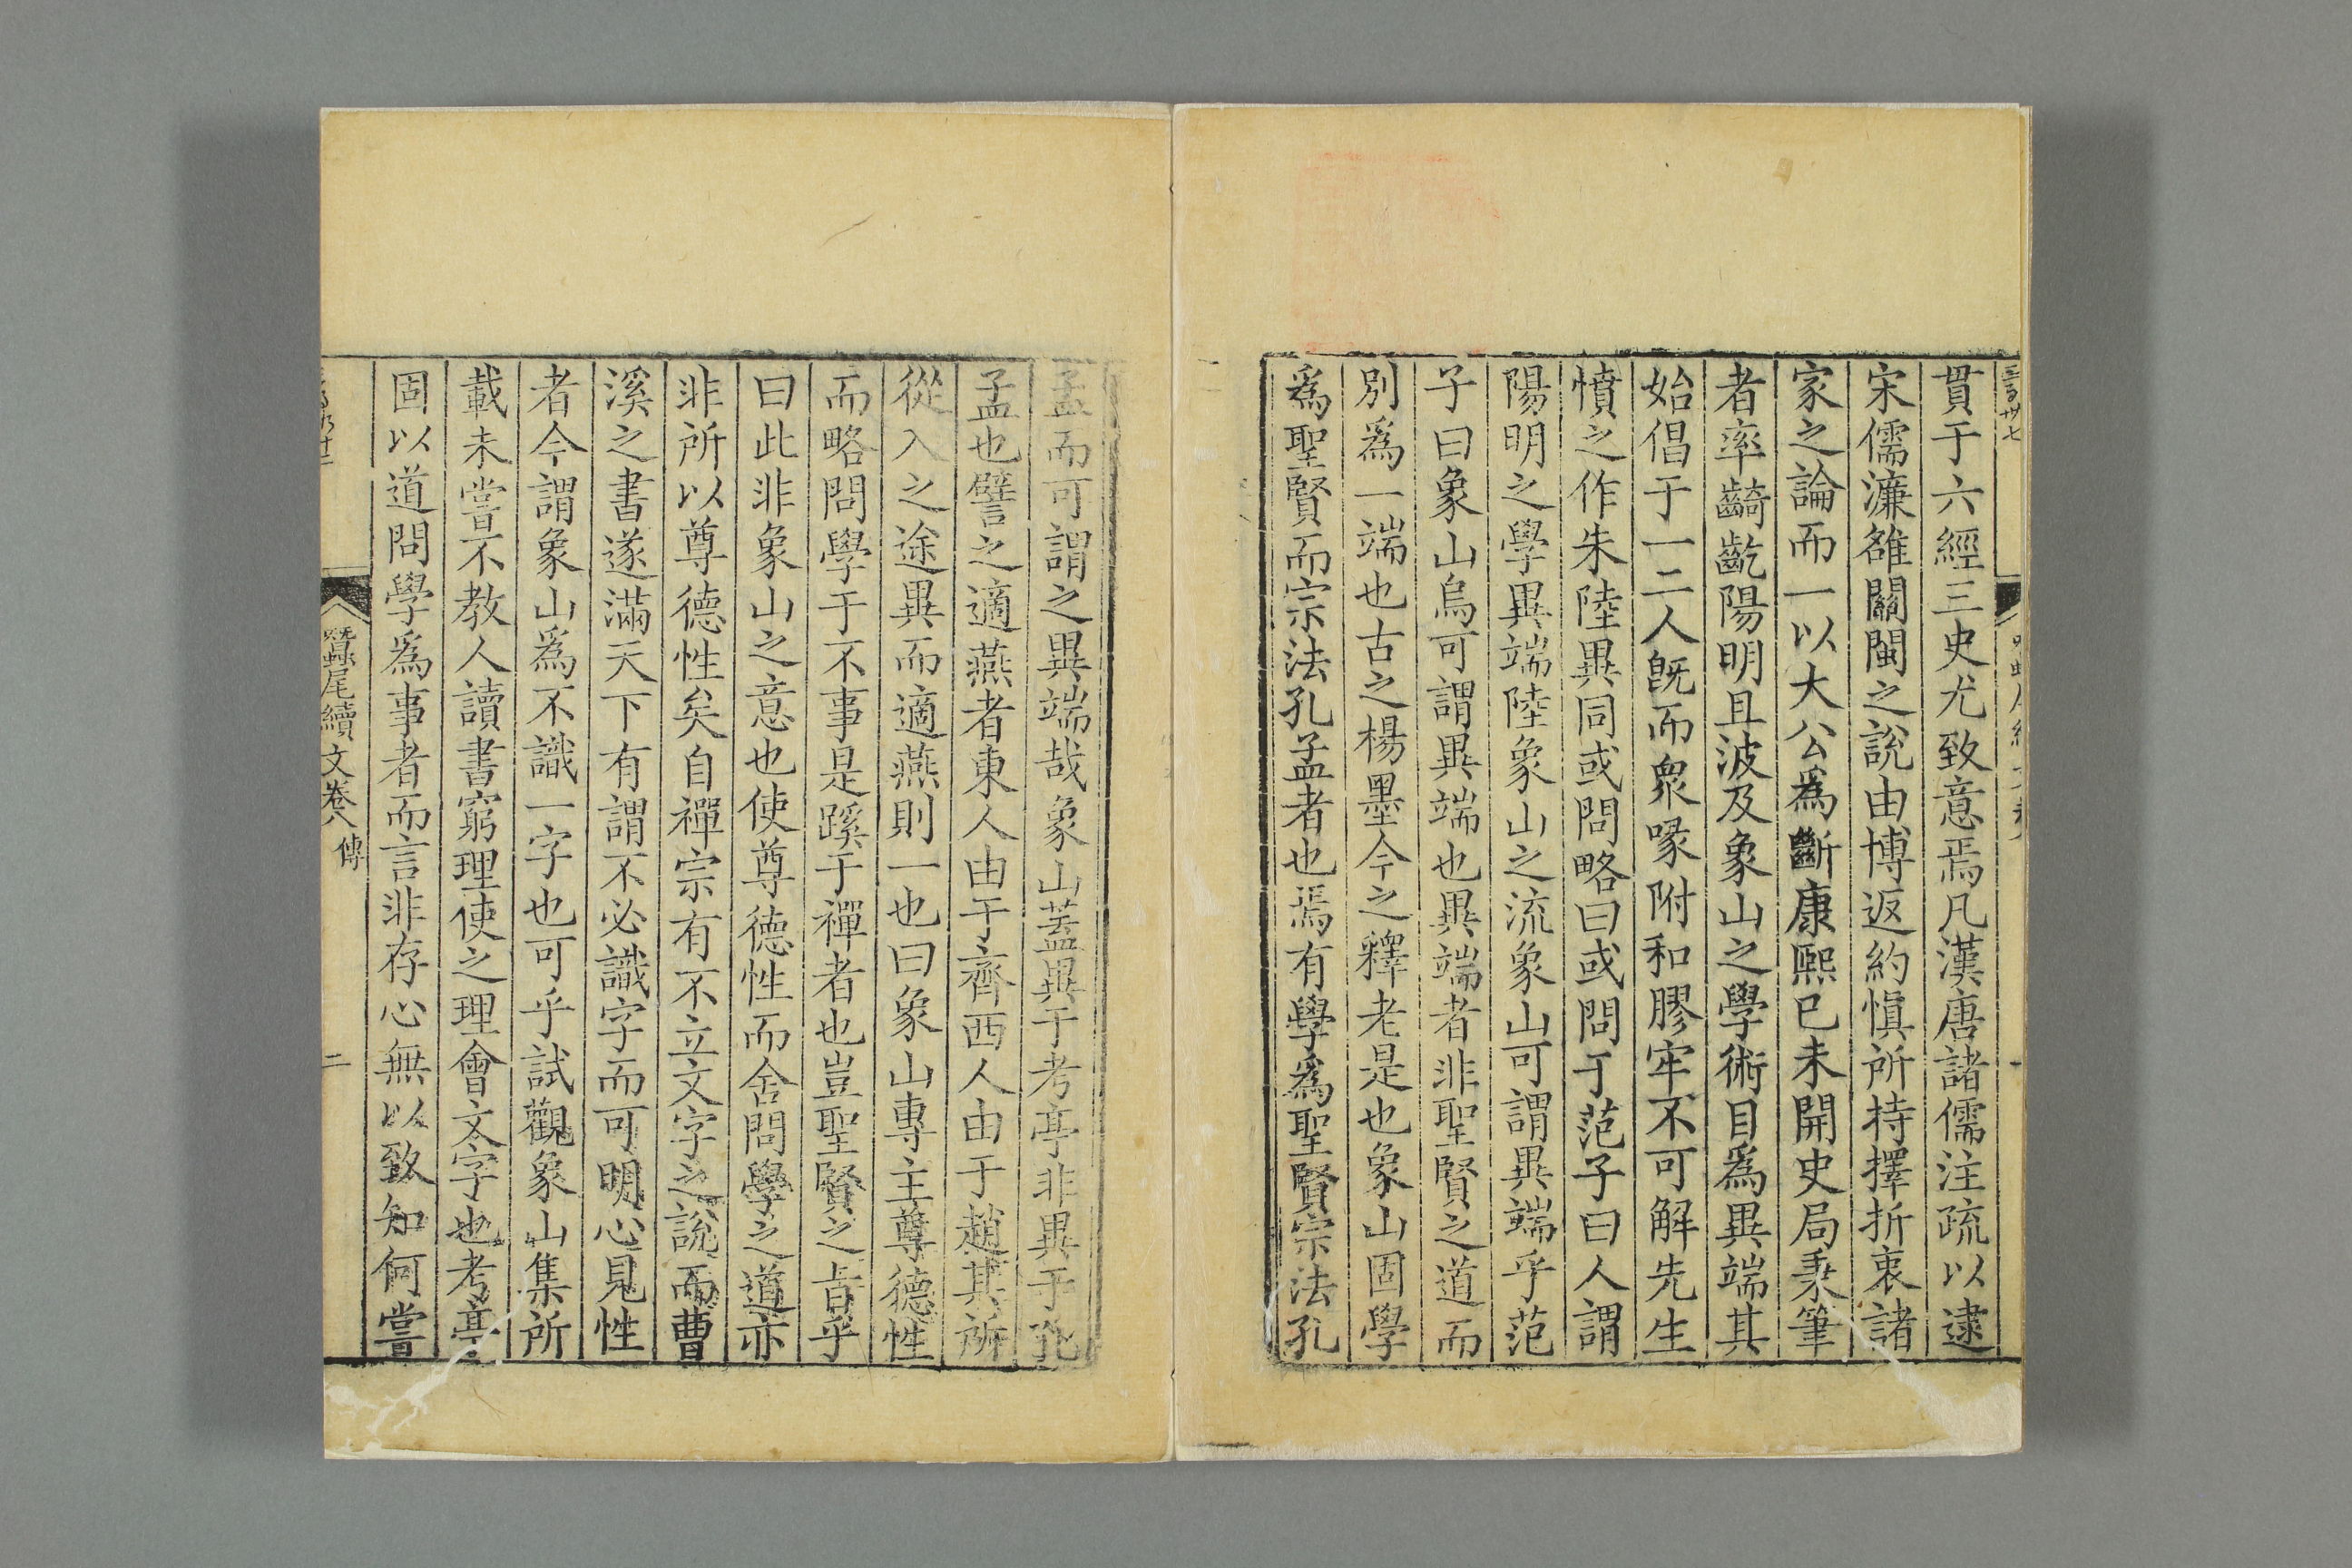 貫于六經三史尤致意焉凡漢唐諸儒注疏以逮
宋儒濂雒關閩之說由博返約慎所持擇折衷諸
家之論而一以大公爲斷康熙已未開史局秉筆
者率齮齕陽明且波及象山之學術目爲異端其
始倡于一二人既而衆喙附和膠牢不可解先生
憤之作朱陸異同或問略曰或問于范子曰人謂
陽明之學異端陸象山之流象山可謂異端乎范
子曰象山烏可謂異端也異端者非聖賢之道而
別爲一端也古之楊墨今之釋老是也象山固學
爲聖賢而宗法孔孟者也焉有學爲聖賢宗法孔
孟而可謂之異端哉象山蓋異于考亭非異于孔
孟也譬之適燕者東人由于齊西人由于趙其所
從入之途異而適燕則一也曰象山專主尊德性
而略問學于不事是蹊于禪者也豈聖賢之旨乎
曰此非象山之意也使尊德性而舍問學之道亦
非所以尊德性矣自禪宗有不立文字之說而曹
溪之書遂滿天下有謂不必識字而可明心見性
者今謂象山爲不識一字也可乎試觀象山集所
載未嘗不教人讀書窮理使之理會文字也考亭
固以道問學爲事者而言非存心無以致知何嘗
蠶尾續文卷八 傳
二